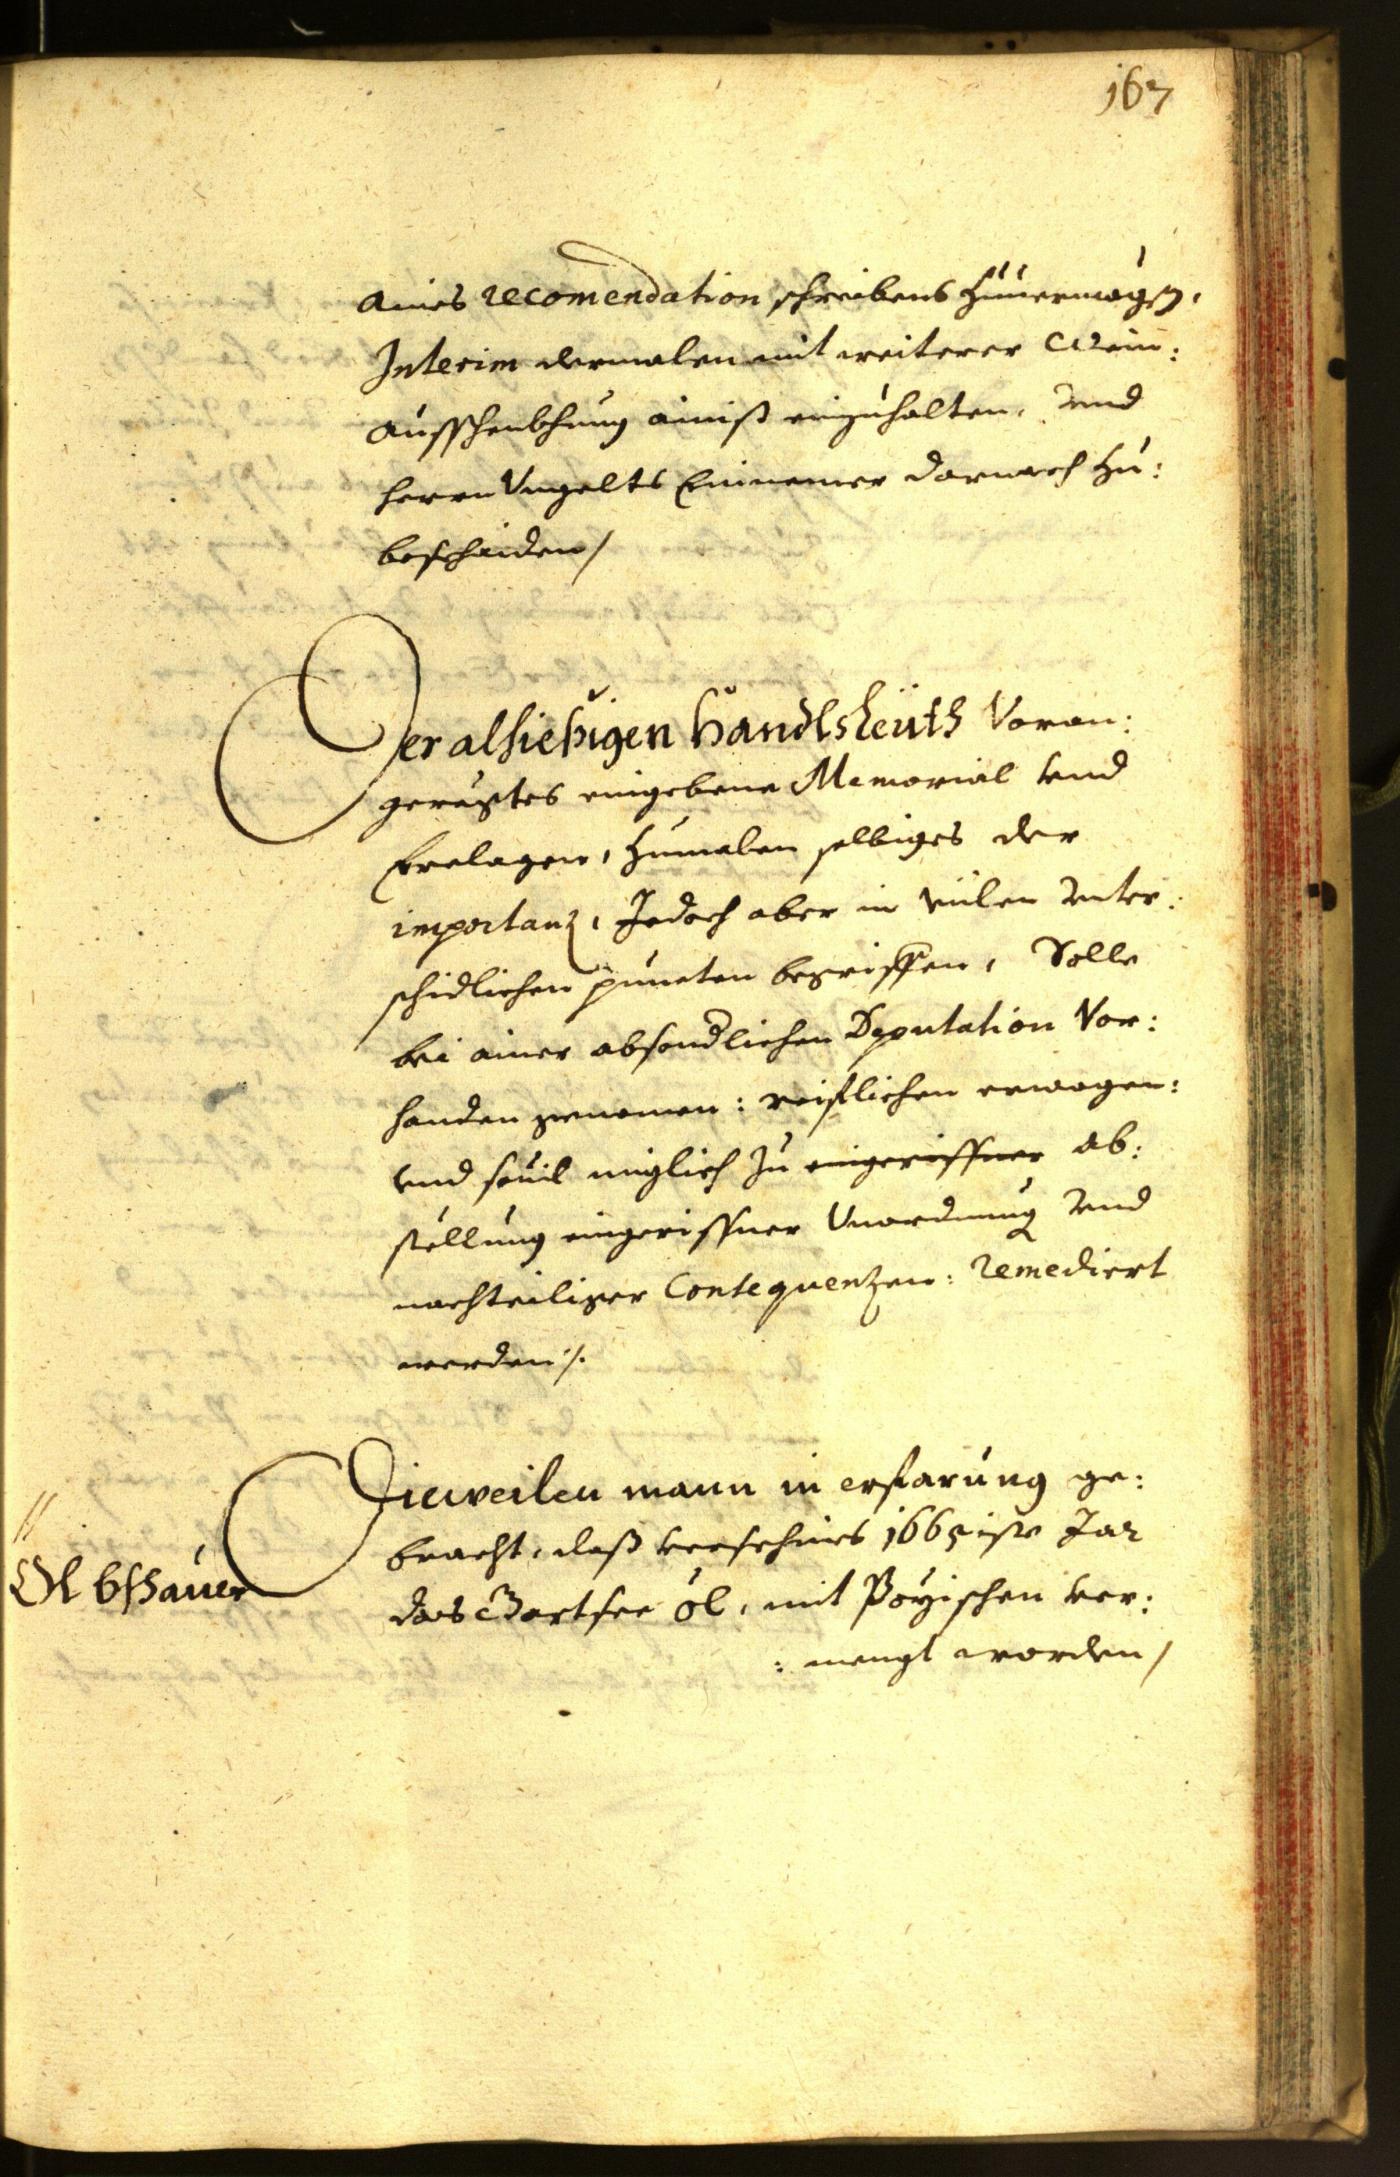 167
aines recomendation schreibens zuuermögen,
Interim dermalen mit weiterer Wein:
ausschenkhung ainiß einzuhalten, vnd
herrn Vngelts Einnemer darnach zu:
beschaiden /
Der alhießigen Handlsleüth Voran:
geregtes eingebene Memorial vnd
Erclagen, zumalen selbiges der
importanz, Jedoch aber in vilen vnter:
schidlichen puncten begriffen, Solle
bei ainer absondlichen Deputation Vor:
handen genomen: reifflichen erwogen:
vnd souil miglich zu eingerissner ab:
stellung eingerissner Vnordnung vnd
nachteiliger Consequenzen: remediert
werden /.
Dieweilen mann in erfarung ge:
bracht, daß verschines 1665iste Jar
Öl bschauer
das Gartsee öl, mit Poÿischen ver:
: mengt worden /